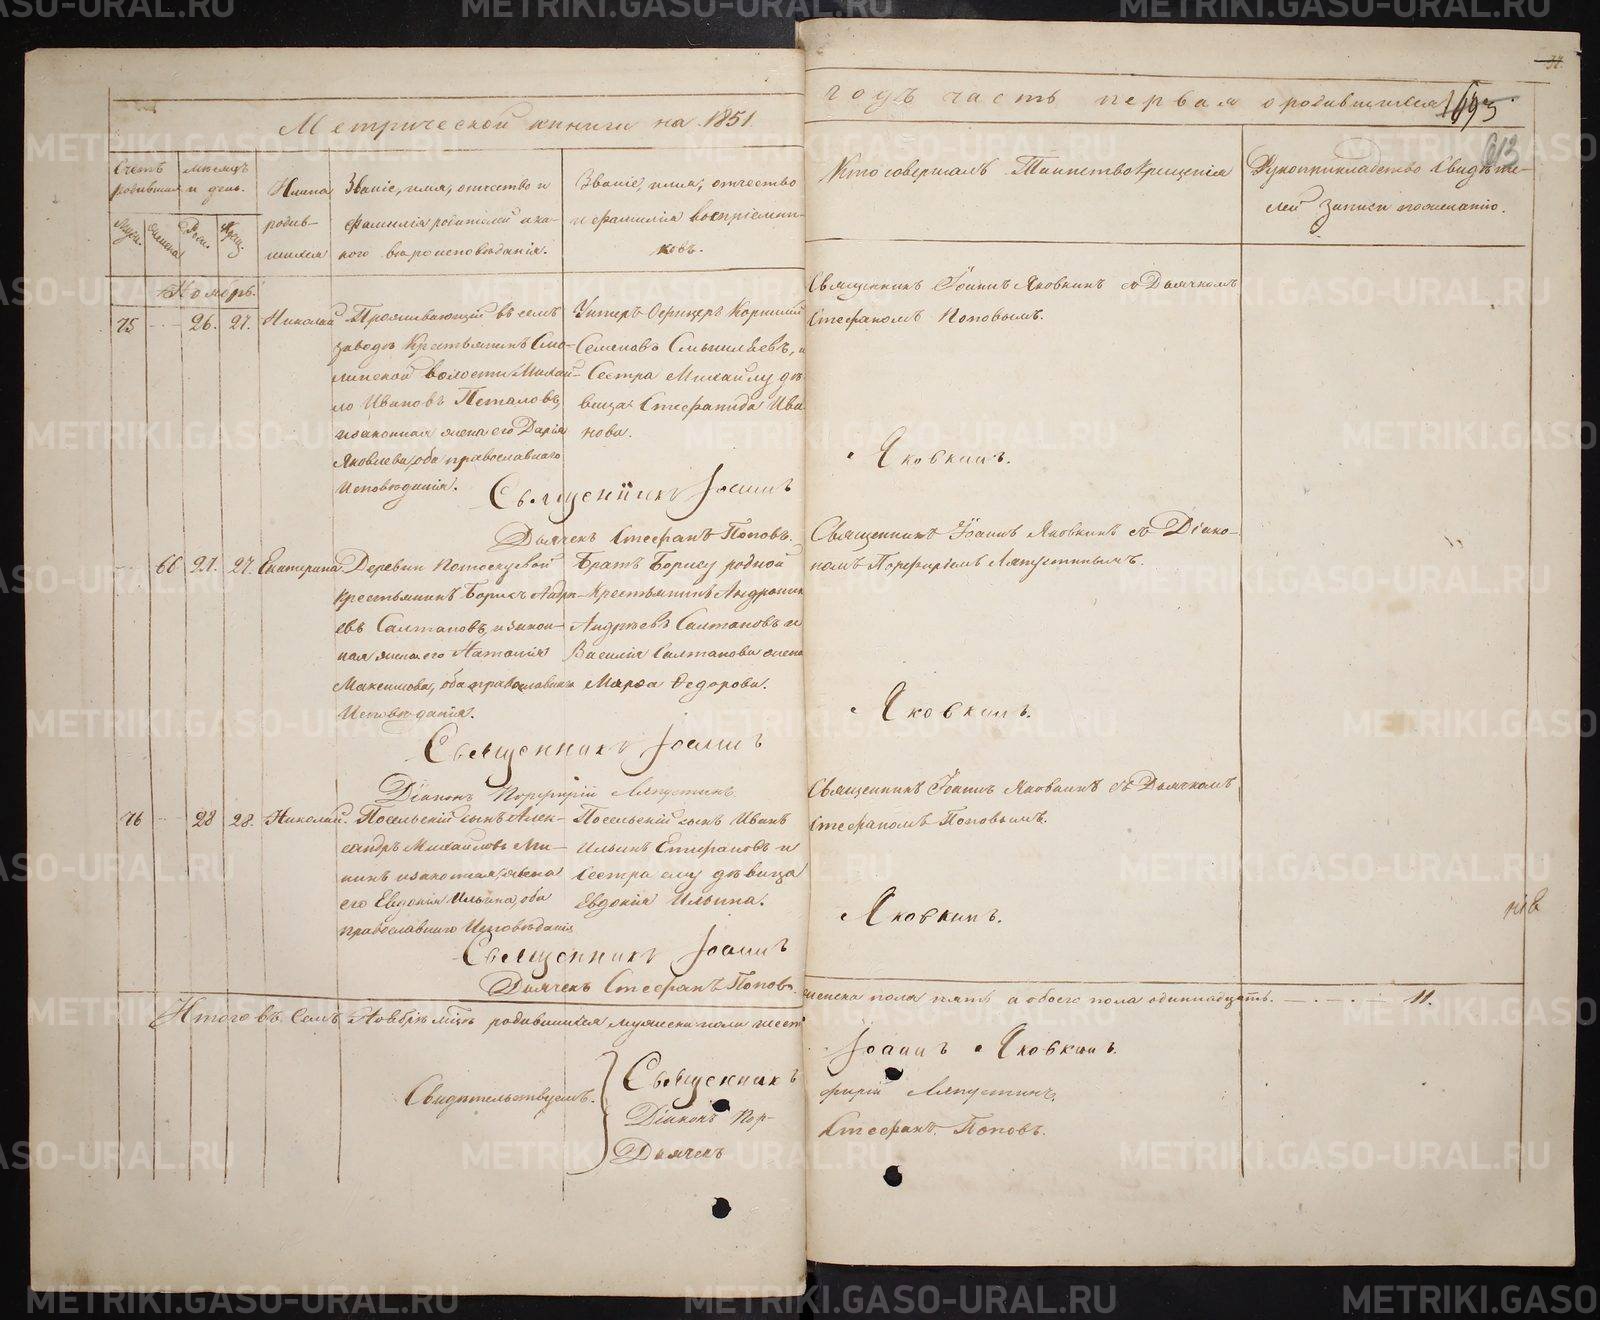 Метрической книги на 1851
годъ часть первая о родившихся
Счетъ родившихся
месяцъ и день.
Имяна родив-
шихся
Званіе, имя, отчество и
фамилія родителей и ка-
кого вероисповѣданія.
Званіе, имя, отчество
и фамилія воспріемни-
ковъ.
Кто совершалъ Таинство Крещенія
Рукоприкладство Свидѣте-
лей записи по желанію.
Ноябрь.
75 26. 27. Николай
Проживающій въ семъ
заводѣ Крестьянинъ Смо-
линской волости Михаи-
ло Ивановъ Петаловъ,
и законная жена его Дарія
Яковлева, оба православнаго
Исповѣданія.
Унтеръ Офицеръ Корнилій
Семеновъ Смышляевъ, и
Сестра Михайлу дѣ-
вица Стефанида Ива
нова.
Священникъ Іоаннъ Яковкинъ съ Дьячкомъ
Стефаномъ Поповымъ.
Священникъ Іоаннъ
Яковкинъ.
Дьячекъ Стефанъ Поповъ.
66 27. 27. Екатерина
Деревни Потоскуевой
крестьянинъ Борисъ Андре-
евъ Салтановъ, и закон-
ная жена его Наталія
Максимова, оба православнаго
Исповѣданія.
Братъ Борису родной
Крестьянинъ Андроник
Андреевъ Салтановъ и
Василія Салтанова жена
Марѳа Ѳедорова.
Священникъ Іоаннъ Яковкинъ съ Діако-
номъ Порфиріемъ Ляпустинымъ.
Священникъ Іоаннъ
Яковкинъ.
Діаконъ Порфирій Ляпустинъ
76 28 28. Николай.
Посельскій сынъ Алек-
сандръ Михайловъ Ми-
нинъ и законная жена
его Евдокія Ильина, оба
православнаго Исповѣданія
Посельскій сынъ Иванъ
Ильинъ Епифановъ и
Сестра ему дѣвица
Евдокія Ильина.
Священникъ Іоаннъ Яковкинъ съ Дьячкомъ
Стефаномъ Поповымъ.
Священникъ Іоаннъ
Яковкинъ.
Дьячекъ Стефанъ Поповъ.
Итого въ семъ Ноябрѣ мцѣ родившихся мужеска пола шесть
женска пола пять а обоего пола одиннадцать. 11.
Свидетельствуемъ.
Священникъ Іоаннъ Яковкинъ.
Діаконъ Порфирій Ляпустинъ.
Дьячекъ Стефанъ Поповъ.
METRIKI.GASO-URAL.RU